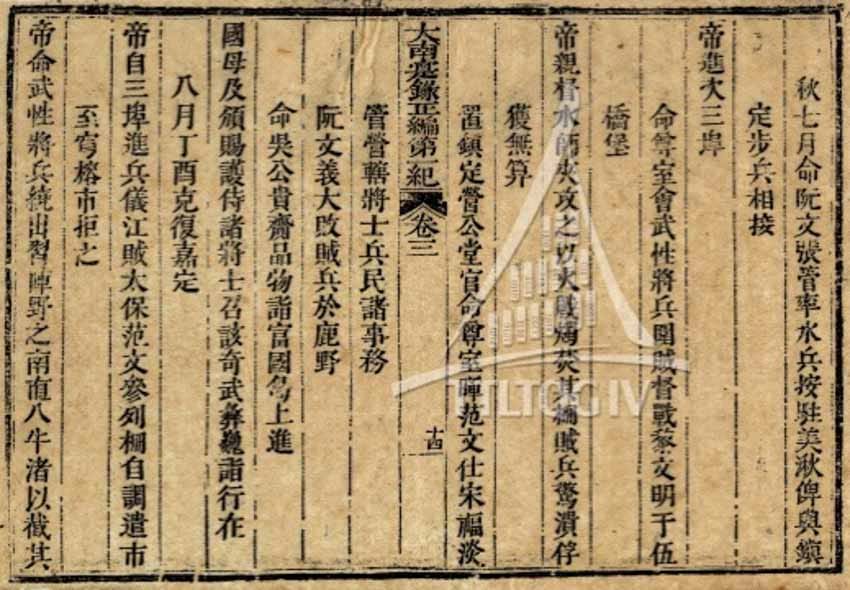 秋七月命阮文張管率水兵按駐美湫俾與鎭
定步兵相接
帝進次三埠
命尊室會武性將兵圍賊督戰黎文明于伍
橋堡
帝親督水師夾攻之以火賊燭焚其柵賊兵驚潰俘
獲無算
置鎭定營公堂官命尊室暉范文仕宋福淡
大南寔錄正編第一紀 卷三 十四
管營轄將士兵民諸事務
阮文義大敗賊兵於鹿野
命吳公貴齎品物詣富國島上進
國母及頒賜護侍諸將士召該奇武彝巍詣行在
八月丁酉克復嘉定
帝自三埠進兵儀江賊太保范文參列柵自調遣市
至穹榕市拒之
帝命武性將兵繞出習陣野之南直八牛渚以截其
TTLTQG IV